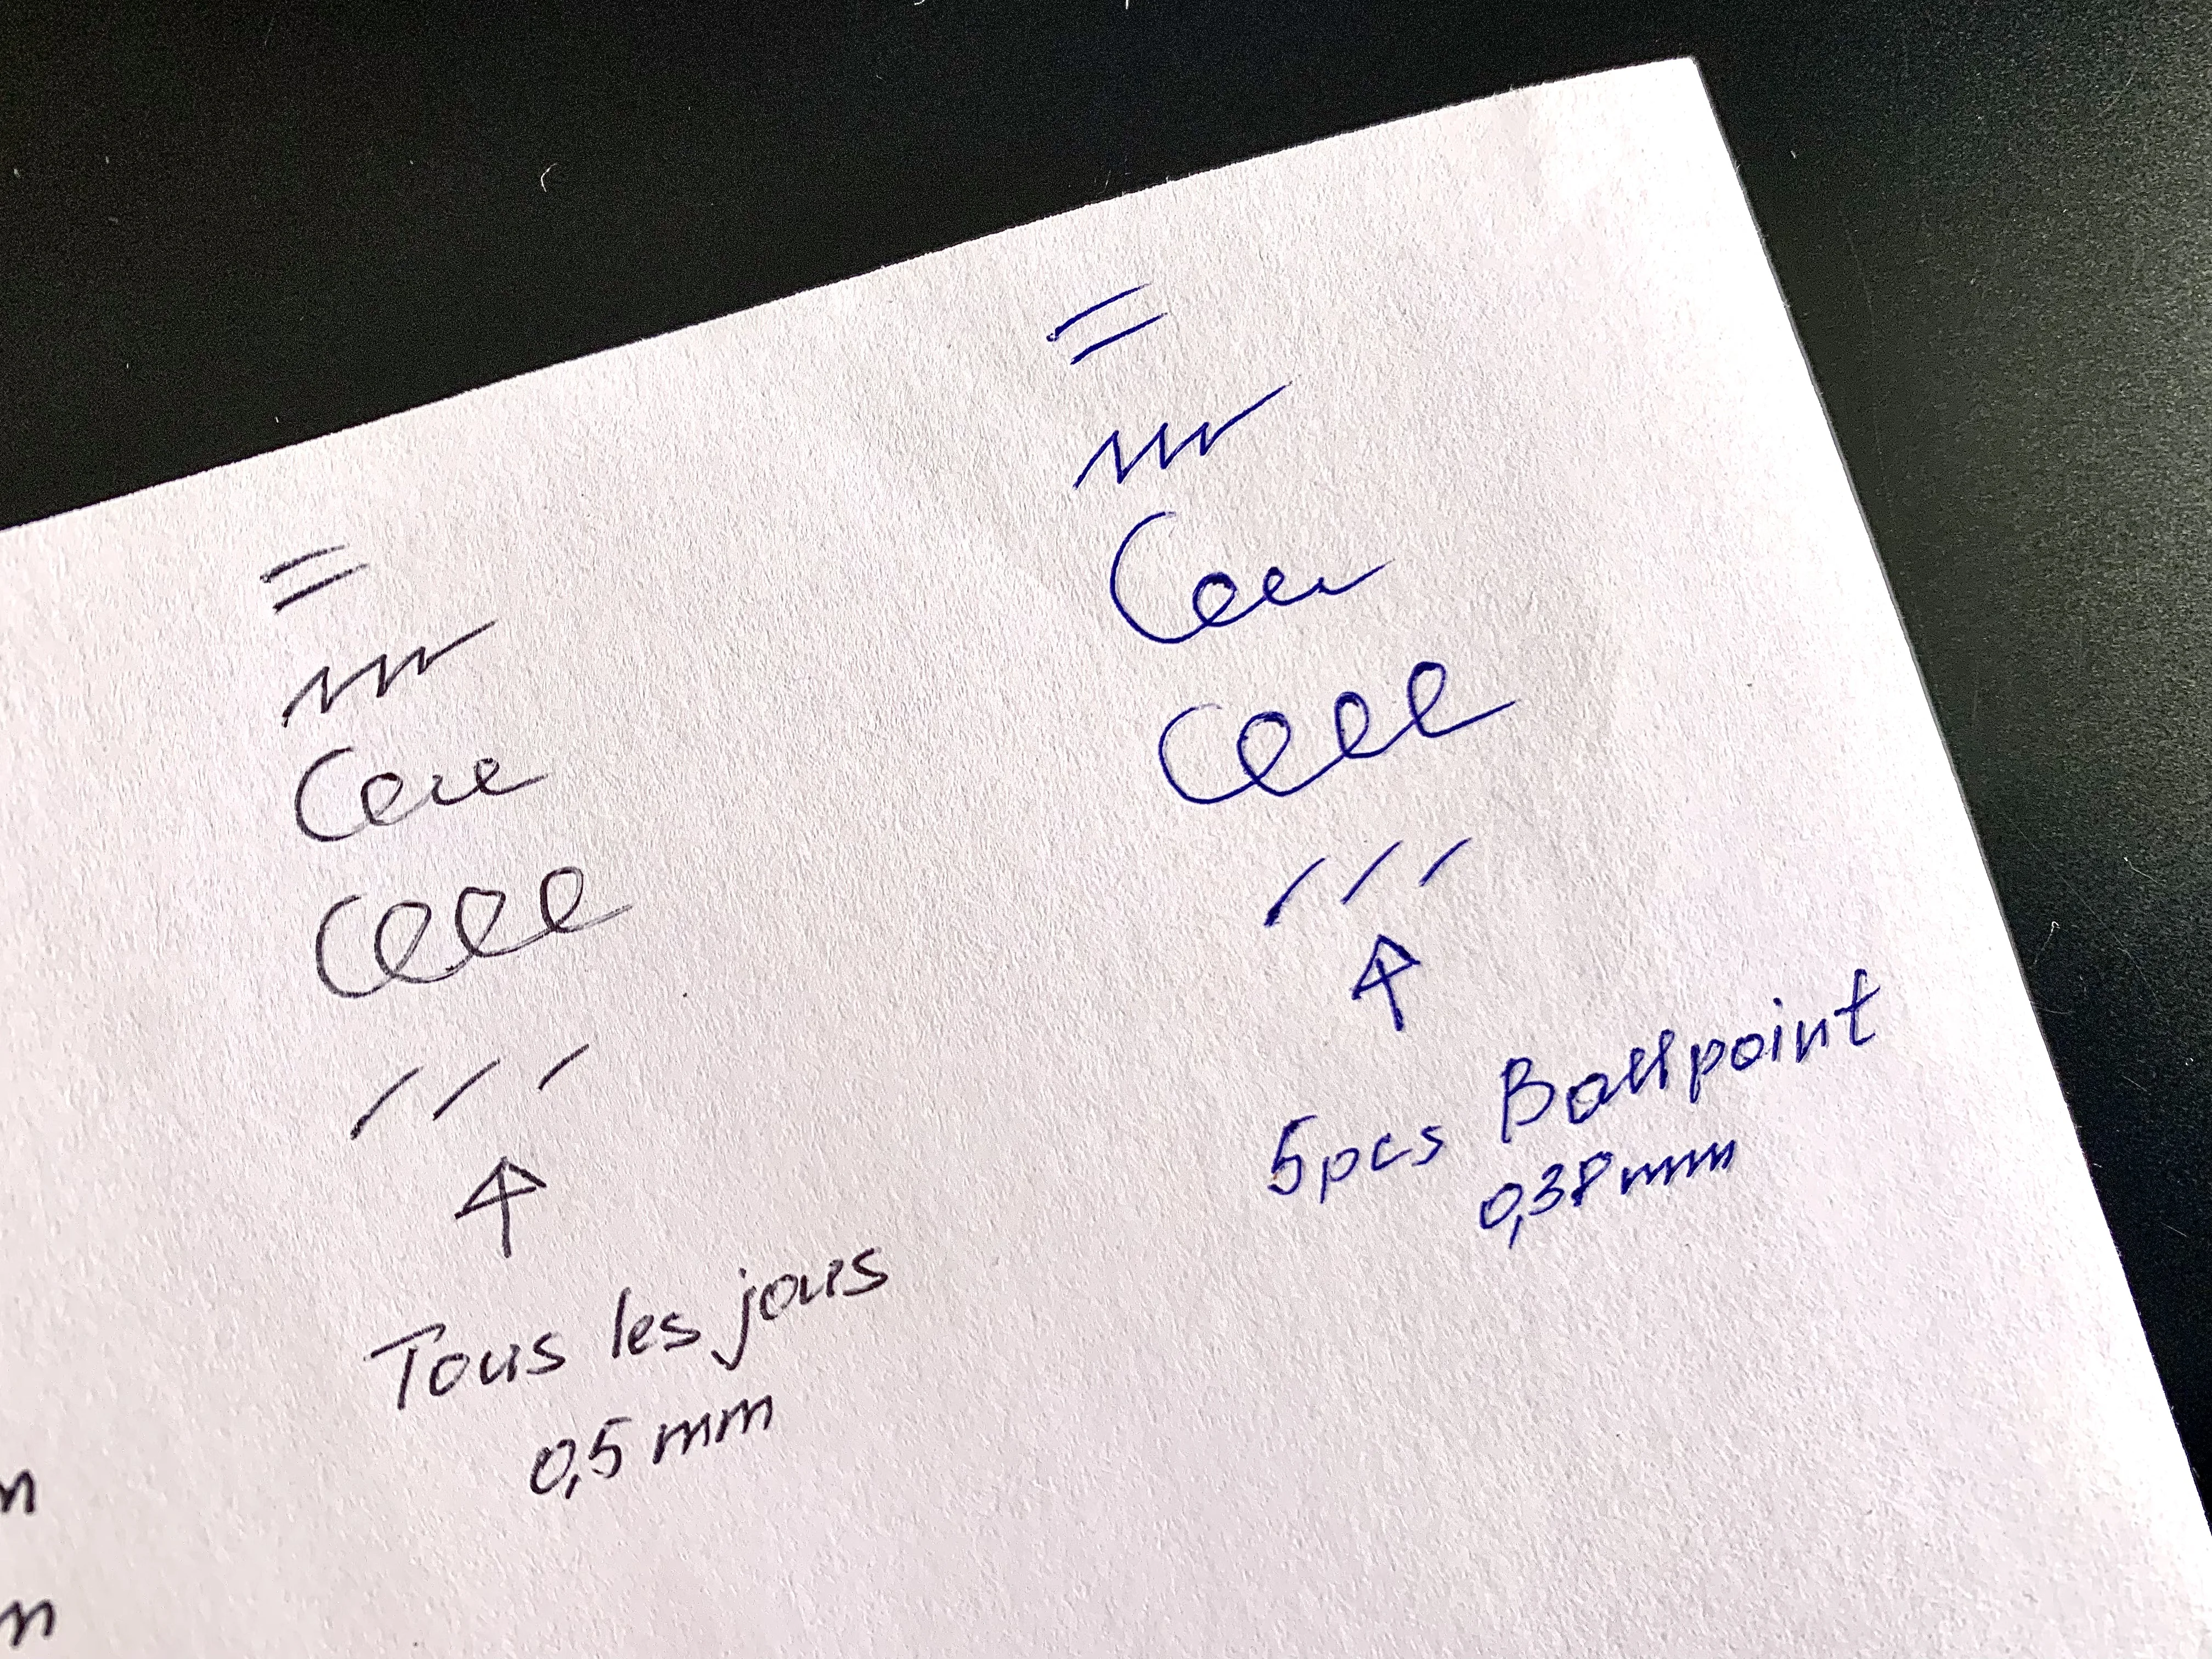 Tous les jous
0,5 mm
5pcs Ballpoint
0,38 mm